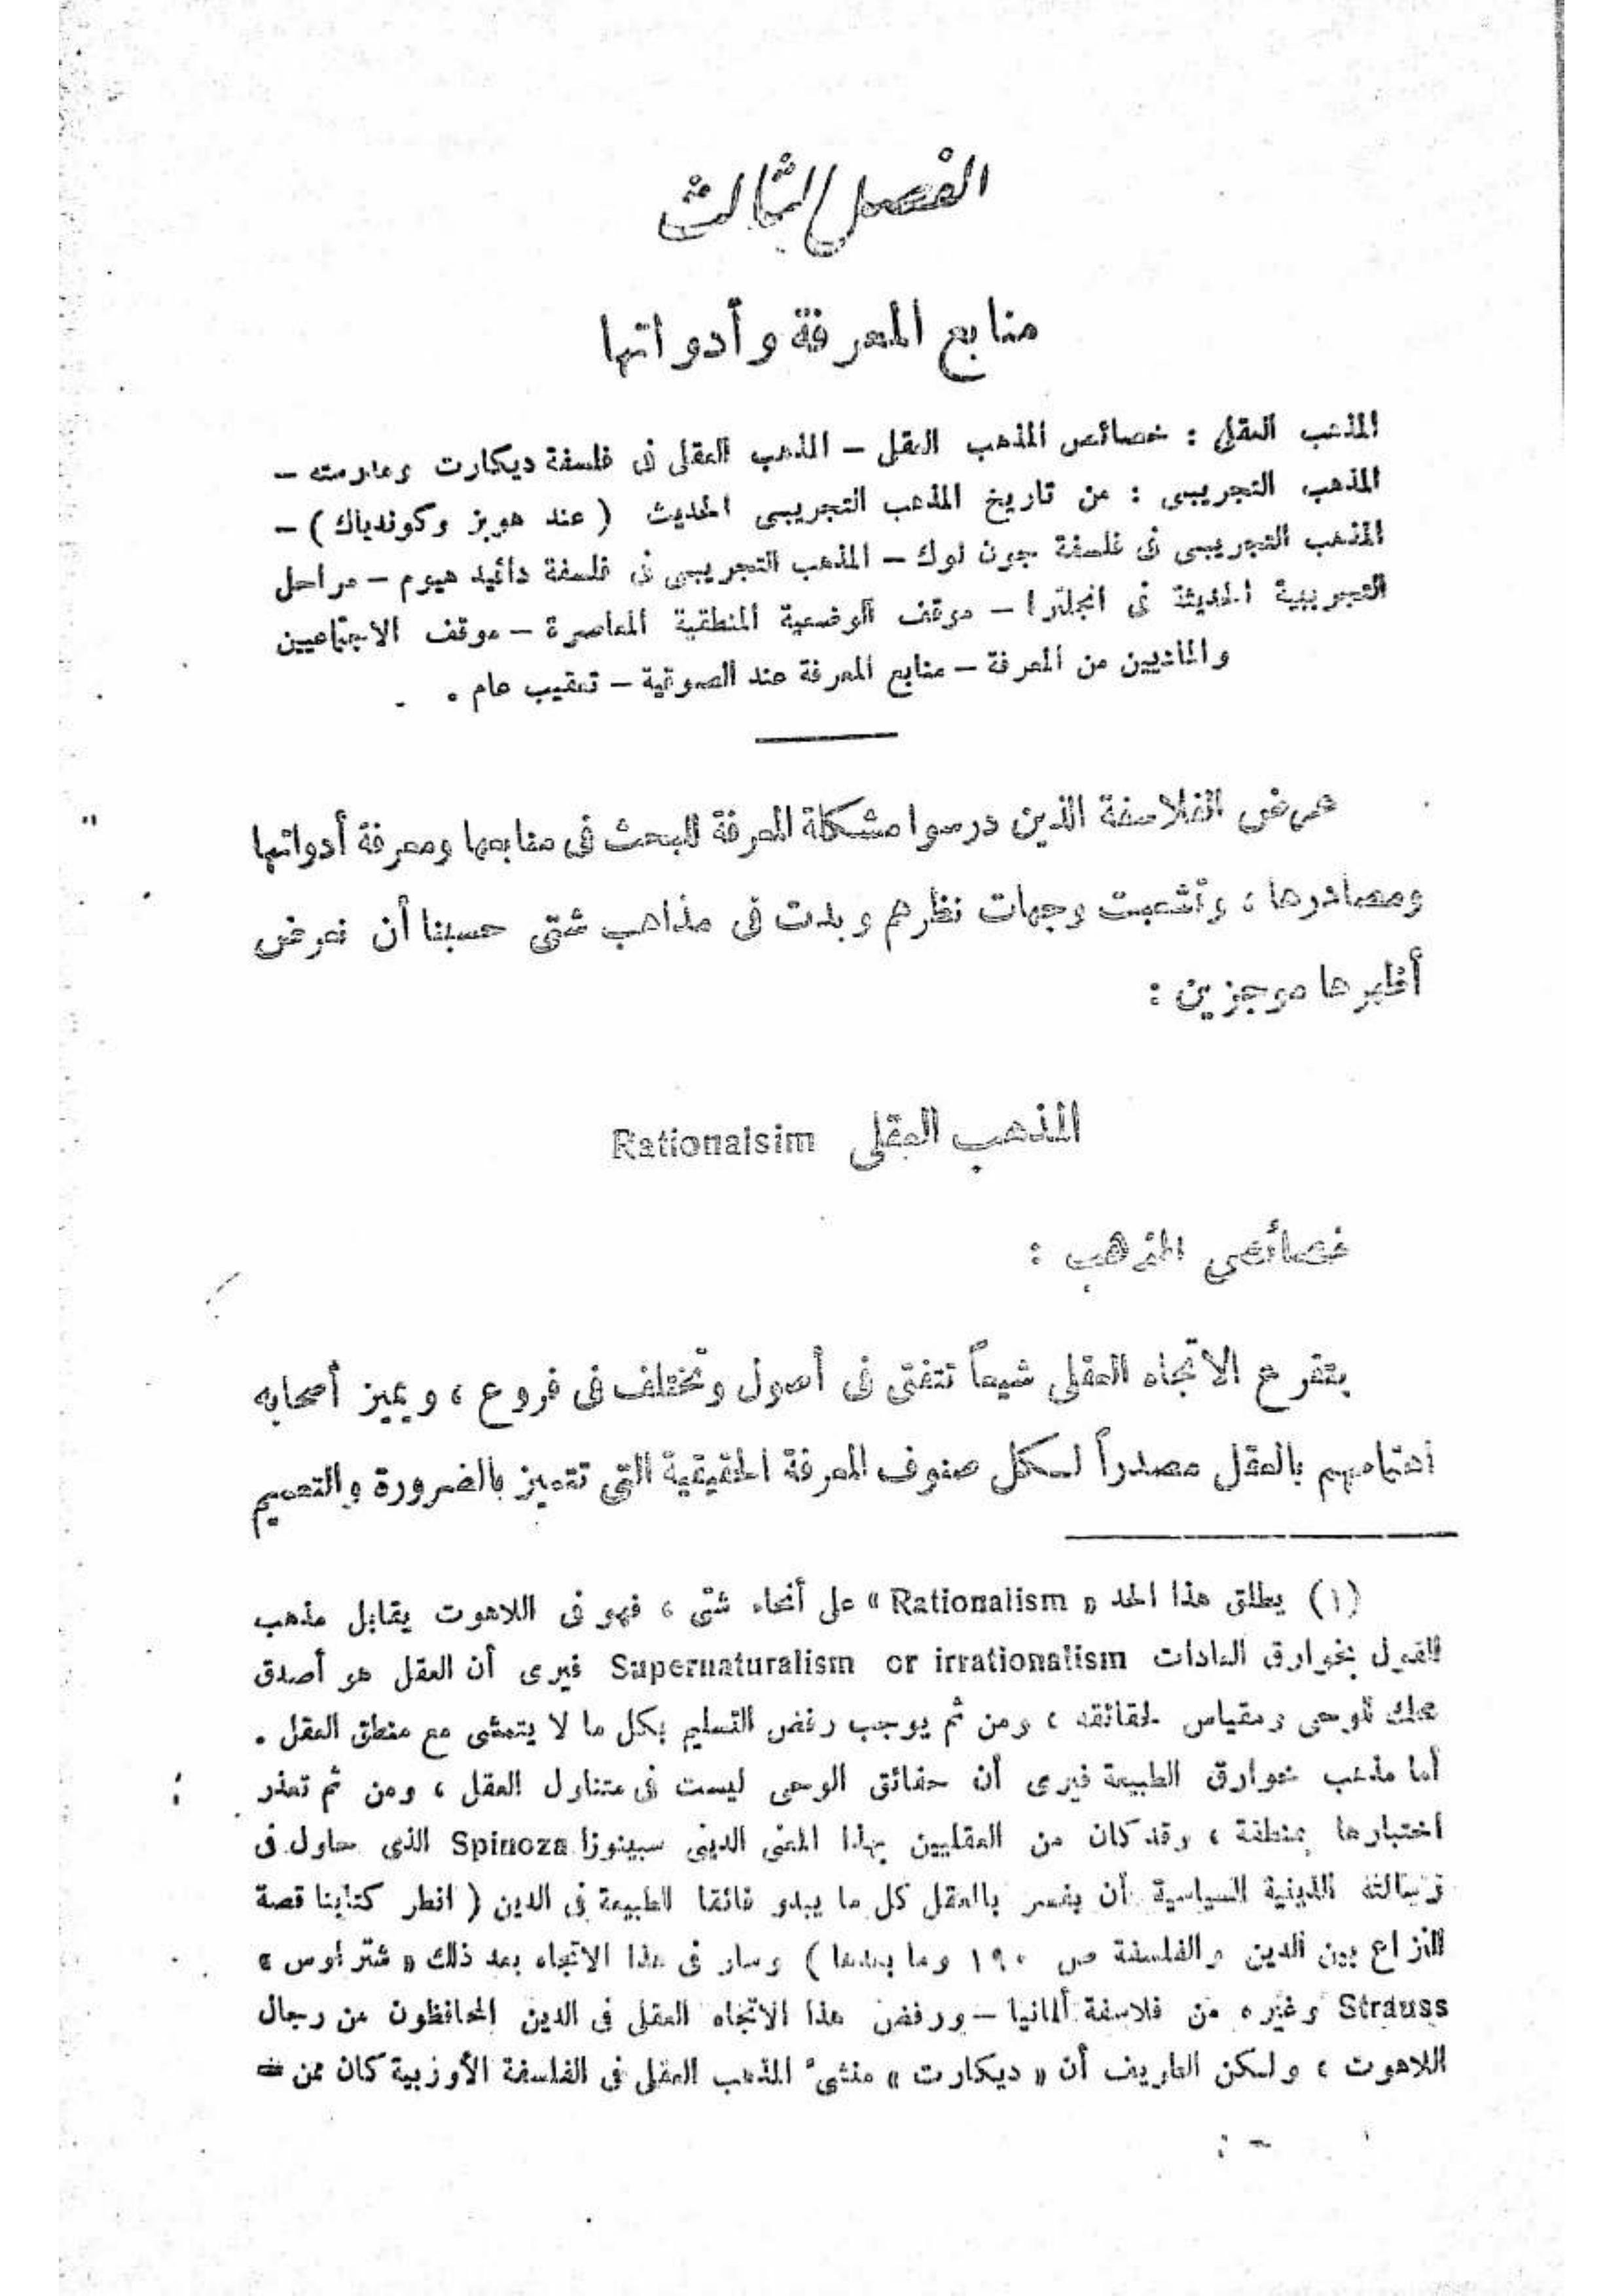 الفصل الثالث
منابع المعرفة وأدواتها
المذهب العقلى : خصائص المذهب العقلى – المذهب العقلى فى فلسفة ديكارت ومدرسته –
المذهب التجريبى : من تاريخ المذهب التجريبى الحديث ( عند هوبز وكوندياك ) –
المذهب التجريبى فى فلسفة جون لوك – المذهب التجريبى فى فلسفة دائيد هيوم – مراحل
التجريبية الحديثة فى انجلترا – موقف الوضعية المنطقية المعاصرة – موقف الاجتماعيين
والماديين من المعرفة – منابع المعرفة عند الصوفية – تعقيب عام .
عرض الفلاسفة الذين درسوا مشكلة المعرفة للبحث فى منابعها ومعرفة أدواتها
ومصادرها ، وتشعبت وجهات نظرهم وبدت فى مذاهب شتى حسبنا أن نعرض
أظهرها موجزين :
المذهب العقلى Rationalsim
خصائص المذهب :
يتفرع الاتجاه العقلى شيعاً تتفق فى أصول وتختلف فى فروع ، ويميز أصحابه
اهتمامهم بالعقل مصدراً لكل صنوف المعرفة الحقيقية التى تتميز بالضرورة والتعميم
(١) يطلق هذا الحد « Rationalism » على أنحاء شتى ، فهو فى اللاهوت يقابل مذهب
القول بخوارق العادات Supernaturalism or irrationalism فيرى أن العقل هو أصدق
محك للوحى ومقياس لحقائقه ، ومن ثم يوجب رفض التسليم بكل ما لا يتمشى مع منطق العقل .
أما مذهب خوارق الطبيعة فيرى أن حقائق الوحى ليست فى متناول العقل ، ومن ثم تعذر
اختبارها بمنطقه ، وقد كان من العقليين بهذا المعنى الدينى سبينوزا Spinoza الذى حاول فى
رسالته الدينية السياسية أن يفسر بالعقل كل ما يبدو فائقا للطبيعة فى الدين ( انظر كتابنا قصة
النزاع بين الدين والفلسفة ص ١٩٠ وما بعدها ) وسار فى هذا الاتجاه بعد ذلك « شتراوس »
Strauss وغيره من فلاسفة ألمانيا – ورفض هذا الاتجاه العقلى فى الدين المحافظون من رجال
اللاهوت ، ولكن الطريف أن « ديكارت » منشئ المذهب العقلى فى الفلسفة الأوربية كان ممن =